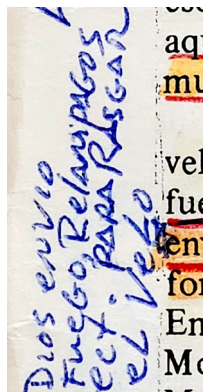 Dios envió
Fuego, Relámpagos
ect. PARA RASGAR
el Velo
aqu
mu
vel
fue
env
for
En
Mo